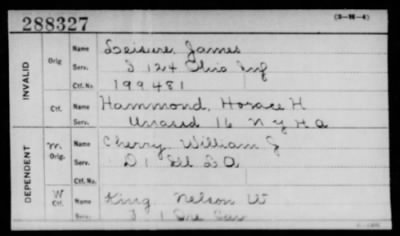 288327
(3-98-4)
INVALID
Orig.
Name Leisure James
Serv. I 124 Ohio Inf
Ctf. No. 199481
Ctf.
Name Hammond, Horace H
Serv. Unassd 16 N Y H A
DEPENDENT
M
Orig.
Name Cherry William J
Serv. D 1 Ill L A
Ctf. No.
W
Ctf.
Name King Nelson W
Serv. 1 Ore